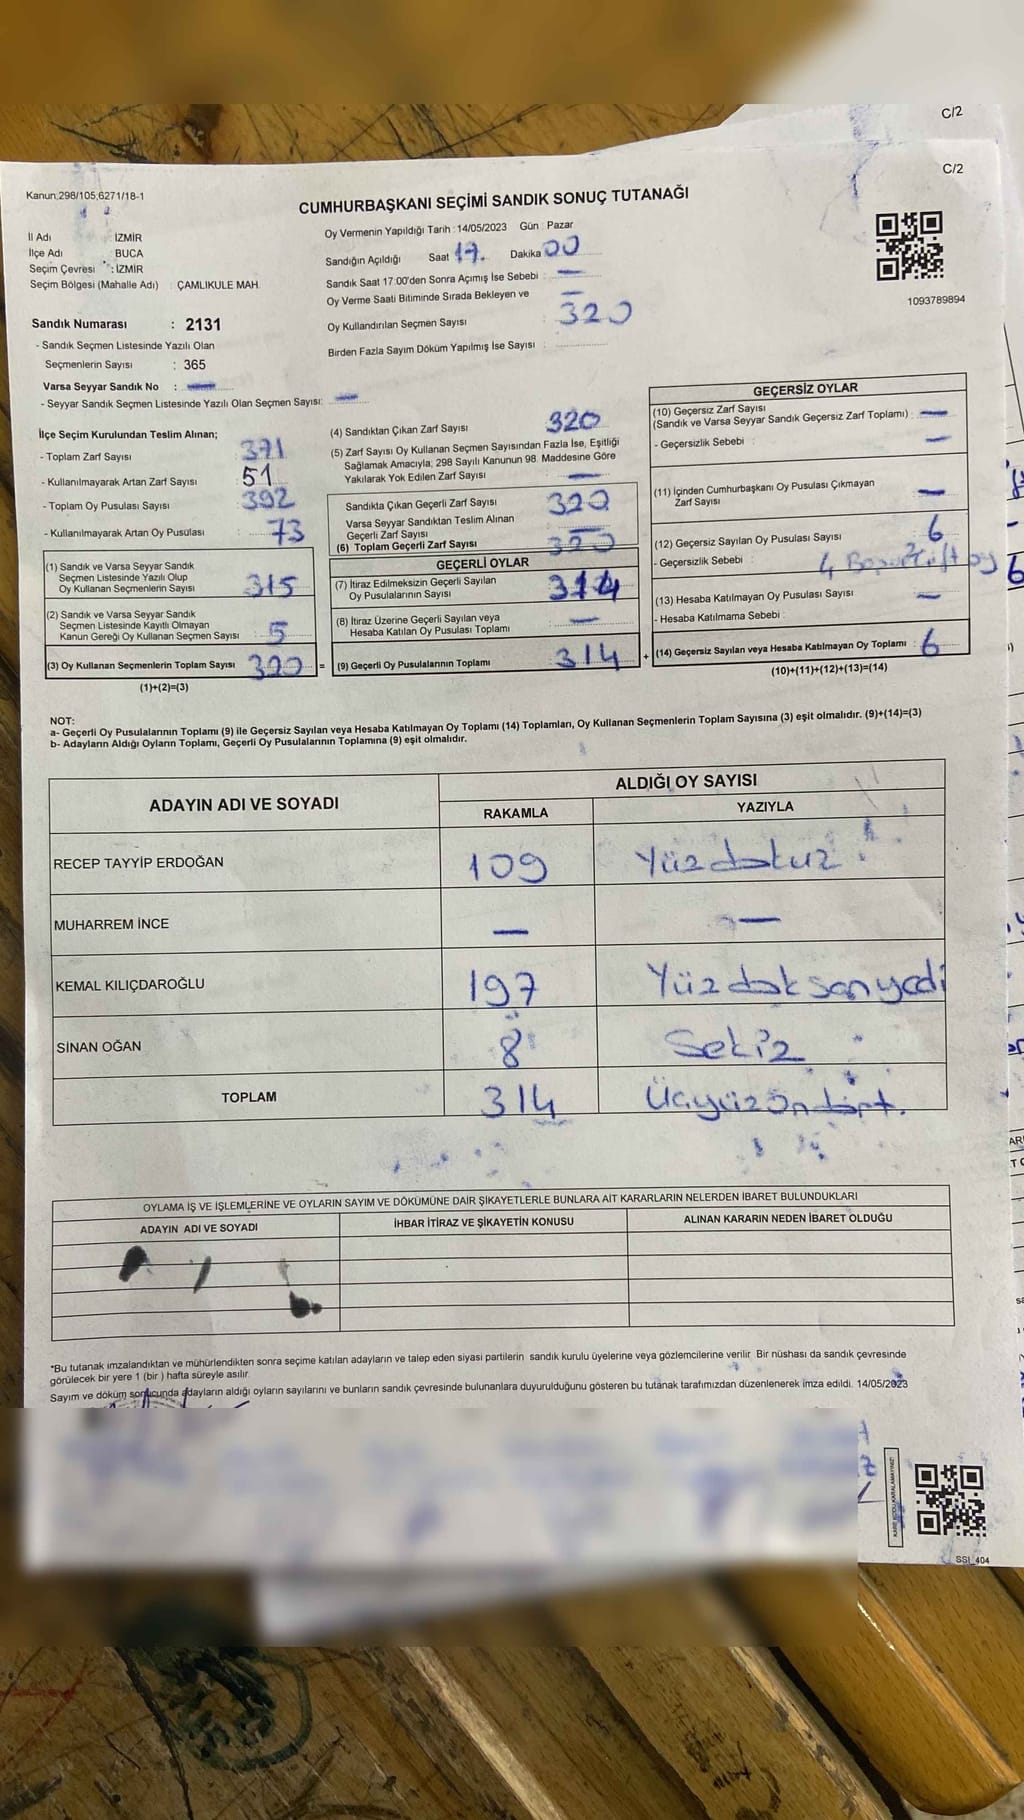 C/2
C/2
Kanun;298/105,6271/18-1
CUMHURBAŞKANI SEÇİMİ SANDIK SONUÇ TUTANAĞI
İl Adı : İZMİR
İlçe Adı : BUCA
Seçim Çevresi : İZMİR
Seçim Bölgesi (Mahalle Adı) : ÇAMLIKULE MAH.
Oy Vermenin Yapıldığı Tarih : 14/05/2023 Gün : Pazar
Sandığın Açıldığı Saat 17. Dakika 00
Sandık Saat 17:00'den Sonra Açımış İse Sebebi : —
Oy Verme Saati Bitiminde Sırada Bekleyen ve —
Oy Kullandırılan Seçmen Sayısı : 320
Birden Fazla Sayım Döküm Yapılmış İse Sayısı :
1093789894
Sandık Numarası : 2131
- Sandık Seçmen Listesinde Yazılı Olan
Seçmenlerin Sayısı : 365
Varsa Seyyar Sandık No : —
- Seyyar Sandık Seçmen Listesinde Yazılı Olan Seçmen Sayısı: —
İlçe Seçim Kurulundan Teslim Alınan;
- Toplam Zarf Sayısı : 371
- Kullanılmayarak Artan Zarf Sayısı : 51
- Toplam Oy Pusulası Sayısı : 392
- Kullanılmayarak Artan Oy Pusulası : 73
(1) Sandık ve Varsa Seyyar Sandık
Seçmen Listesinde Yazılı Olup
Oy Kullanan Seçmenlerin Sayısı : 315
(2) Sandık ve Varsa Seyyar Sandık
Seçmen Listesinde Kayıtlı Olmayan
Kanun Gereği Oy Kullanan Seçmen Sayısı : 5
(3) Oy Kullanan Seçmenlerin Toplam Sayısı : 320 =
(1)+(2)=(3)
(4) Sandıktan Çıkan Zarf Sayısı : 320
(5) Zarf Sayısı Oy Kullanan Seçmen Sayısından Fazla İse, Eşitliği
Sağlamak Amacıyla; 298 Sayılı Kanunun 98. Maddesine Göre
Yakılarak Yok Edilen Zarf Sayısı : —
Sandıkta Çıkan Geçerli Zarf Sayısı : 320
Varsa Seyyar Sandıktan Teslim Alınan
Geçerli Zarf Sayısı : —
(6) Toplam Geçerli Zarf Sayısı : 320
GEÇERLİ OYLAR
(7) İtiraz Edilmeksizin Geçerli Sayılan
Oy Pusulalarının Sayısı : 314
(8) İtiraz Üzerine Geçerli Sayılan veya
Hesaba Katılan Oy Pusulası Toplamı : —
(9) Geçerli Oy Pusulalarının Toplamı : 314 +
GEÇERSİZ OYLAR
(10) Geçersiz Zarf Sayısı
(Sandık ve Varsa Seyyar Sandık Geçersiz Zarf Toplamı) : —
- Geçersizlik Sebebi : —
(11) İçinden Cumhurbaşkanı Oy Pusulası Çıkmayan
Zarf Sayısı : —
(12) Geçersiz Sayılan Oy Pusulası Sayısı : 6
- Geçersizlik Sebebi : 4 Boş 2 çift oy
(13) Hesaba Katılmayan Oy Pusulası Sayısı : —
- Hesaba Katılmama Sebebi :
(14) Geçersiz Sayılan veya Hesaba Katılmayan Oy Toplamı : 6
(10)+(11)+(12)+(13)=(14)
NOT:
a- Geçerli Oy Pusulalarının Toplamı (9) ile Geçersiz Sayılan veya Hesaba Katılmayan Oy Toplamı (14) Toplamları, Oy Kullanan Seçmenlerin Toplam Sayısına (3) eşit olmalıdır. (9)+(14)=(3)
b- Adayların Aldığı Oyların Toplamı, Geçerli Oy Pusulalarının Toplamına (9) eşit olmalıdır.
ADAYIN ADI VE SOYADI
ALDIĞI OY SAYISI
RAKAMLA YAZIYLA
RECEP TAYYİP ERDOĞAN 109 Yüzdokuz
MUHARREM İNCE — —
KEMAL KILIÇDAROĞLU 197 Yüzdoksanyedi
SİNAN OĞAN 8 Sekiz
TOPLAM 314 Üçyüzondört.
OYLAMA İŞ VE İŞLEMLERİNE VE OYLARIN SAYIM VE DÖKÜMÜNE DAİR ŞİKAYETLERLE BUNLARA AİT KARARLARIN NELERDEN İBARET BULUNDUKLARI
ADAYIN ADI VE SOYADI İHBAR İTİRAZ VE ŞİKAYETİN KONUSU ALINAN KARARIN NEDEN İBARET OLDUĞU
*Bu tutanak imzalandıktan ve mühürlendikten sonra seçime katılan adayların ve talep eden siyasi partilerin sandık kurulu üyelerine veya gözlemcilerine verilir. Bir nüshası da sandık çevresinde
görülecek bir yere 1 (bir ) hafta süreyle asılır.
Sayım ve döküm sonucunda adayların aldığı oyların sayılarını ve bunların sandık çevresinde bulunanlara duyurulduğunu gösteren bu tutanak tarafımızdan düzenlenerek imza edildi. 14/05/2023
KARE KODU KARALAMAYINIZ!
SSI_404